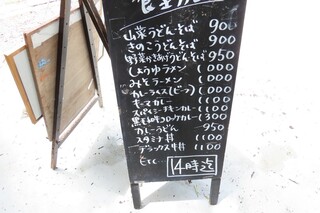 山菜うどん・そば 900
きのこうどん・そば 900
野菜かきあげうどん・そば 950
しょうゆラーメン 1000
みそラーメン 1000
カレーライス(ビーフ) 1000
キーマカレー 1100
スパイシーチキンカレー 1000
黒毛和牛コロッケカレー 1300
カレーうどん 950
スタミナ丼 1100
デラックス牛丼 1100
etc...
14時迄